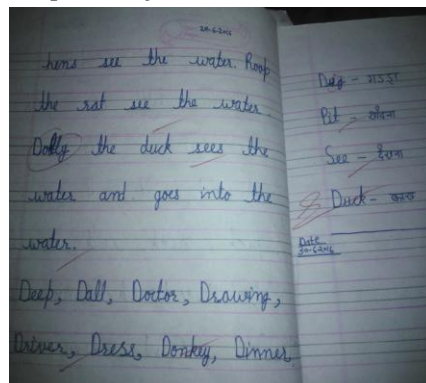 20-6-2016
hens see the water. Roop
the rat see the water.
Dolly the duck sees the
water and goes into the
water.
Deep, Dall, Doctor, Drawing,
Driver, Dress, Donkey, Dinner.
Dig - गड्डा
Pit - खोदना
See - देखना
Duck - बतख
Date
20-6-2016